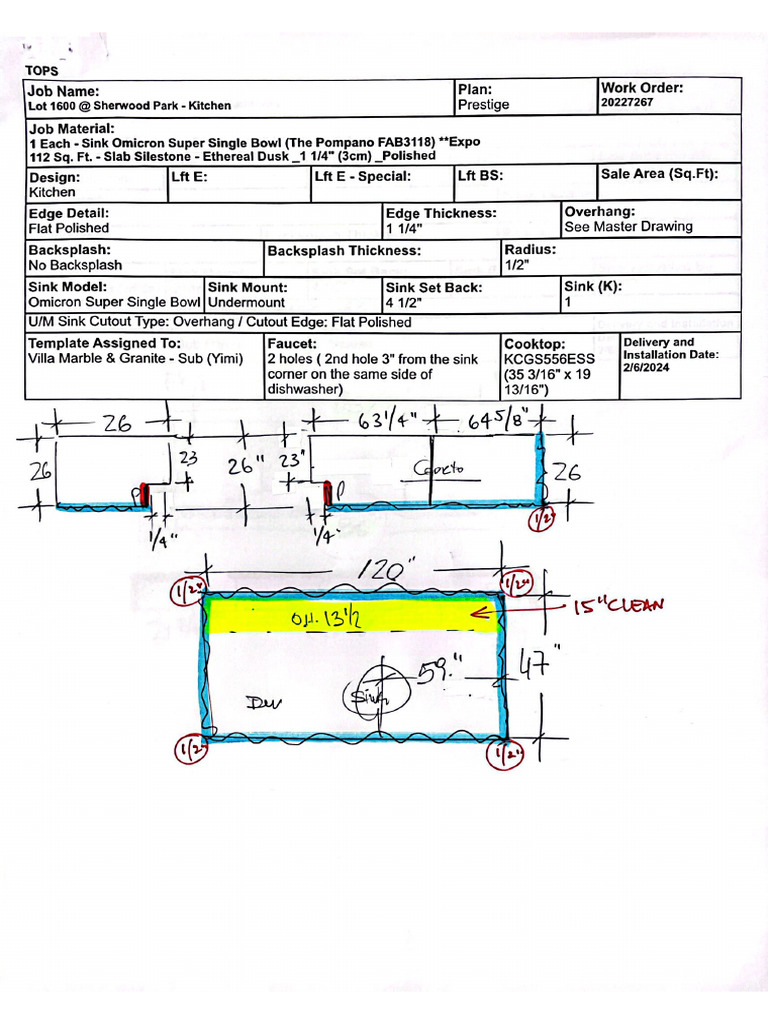 TOPS
Job Name:
Lot 1600 @ Sherwood Park - Kitchen
Plan:
Prestige
Work Order:
20227267
Job Material:
1 Each - Sink Omicron Super Single Bowl (The Pompano FAB3118) **Expo
112 Sq. Ft. - Slab Silestone - Ethereal Dusk _1 1/4" (3cm) _Polished
Design:
Kitchen
Lft E:
Lft E - Special:
Lft BS:
Sale Area (Sq.Ft):
Edge Detail:
Flat Polished
Edge Thickness:
1 1/4"
Overhang:
See Master Drawing
Backsplash:
No Backsplash
Backsplash Thickness:
Radius:
1/2"
Sink Model:
Omicron Super Single Bowl
Sink Mount:
Undermount
Sink Set Back:
4 1/2"
Sink (K):
1
U/M Sink Cutout Type: Overhang / Cutout Edge: Flat Polished
Template Assigned To:
Villa Marble & Granite - Sub (Yimi)
Faucet:
2 holes ( 2nd hole 3" from the sink
corner on the same side of
dishwasher)
Cooktop:
KCGS556ESS
(35 3/16" x 19
13/16")
Delivery and
Installation Date:
2/6/2024
26
63 1/4"
64 5/8"
26
23
26"
23"
26
P
P
1/4"
1/4"
1/2"
120"
1/2"
1/2"
O.H. 13 1/2
15" CLEAN
59"
47"
Sink
1/2"
1/2"